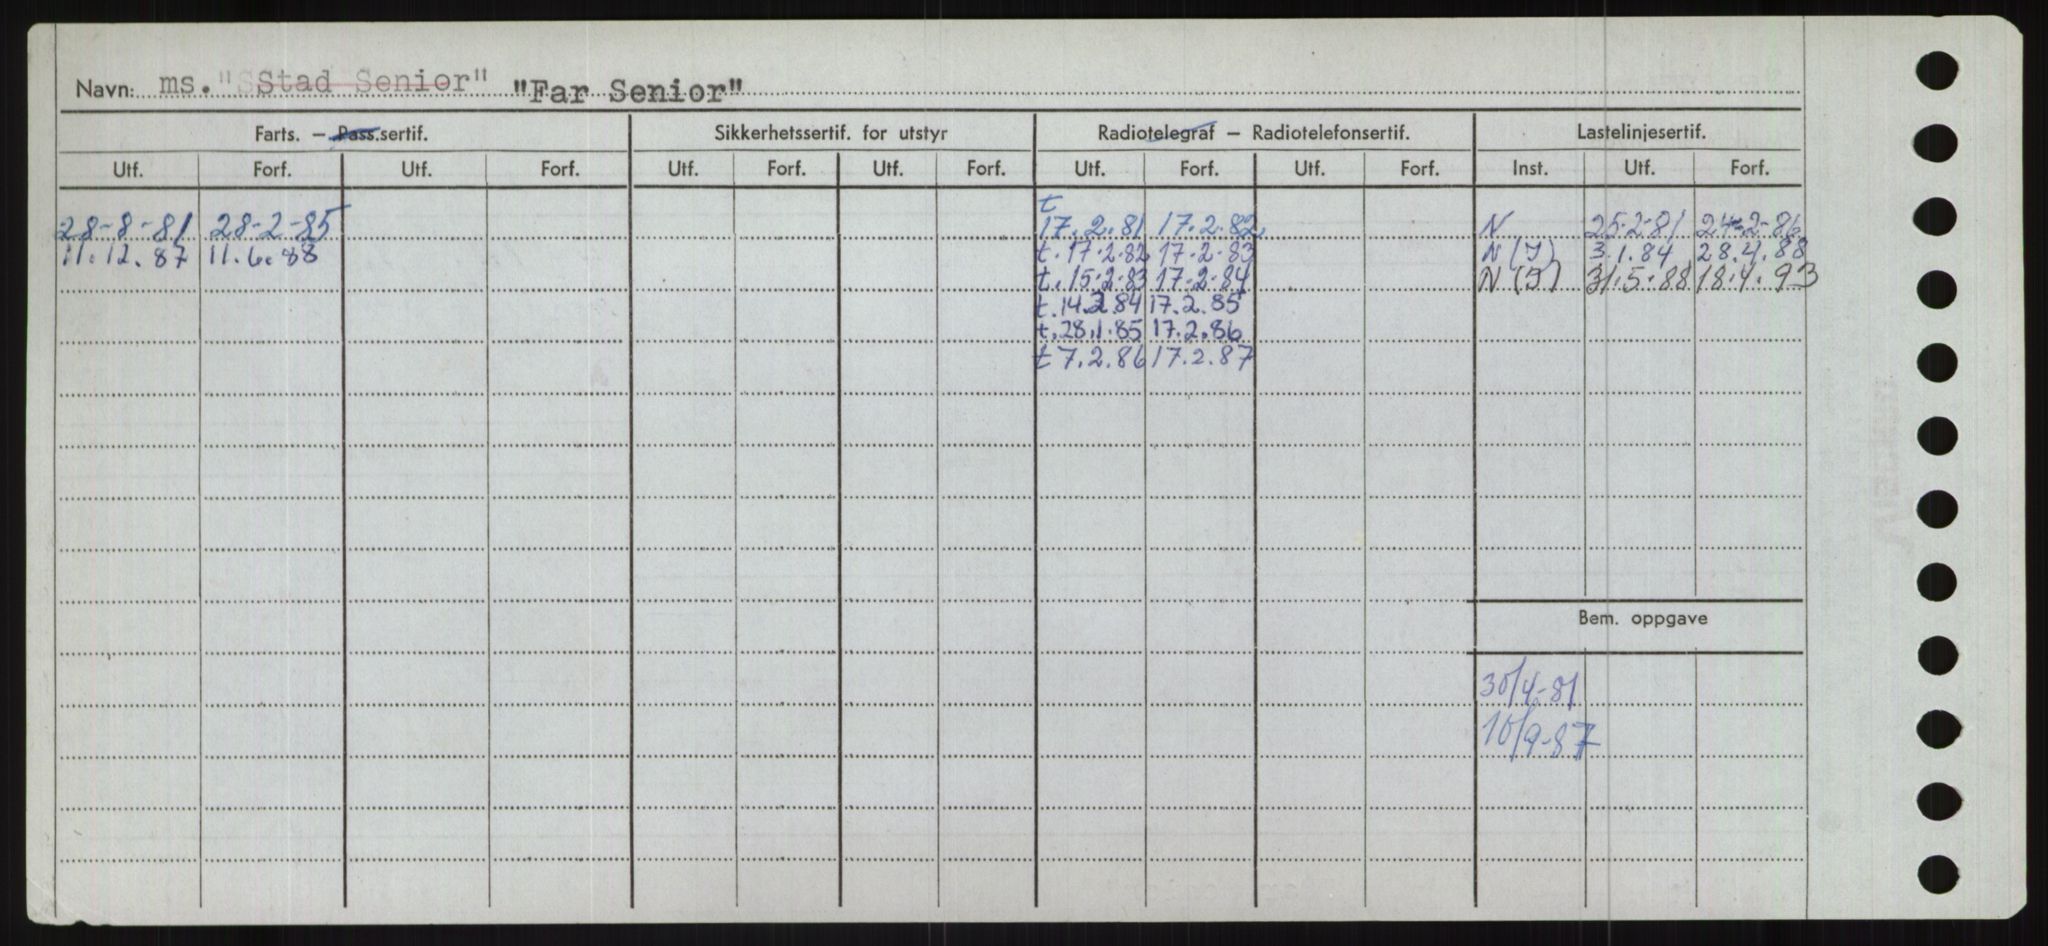 Navn: ms. "SStad Senior" "Far Senior"
Farts. — Pass.sertif. Sikkerhetssertif. for utstyr Radiotelegraf — Radiotelefonsertif. Lastelinjesertif.
Utf. Forf. Utf. Forf. Utf. Forf. Utf. Forf. Utf. Forf. Utf. Forf. Inst. Utf. Forf.
t
28-8-81 28-2-85 17.2.81 17.2.82. N 25-2-81 24-2-86
11.12.87 11.6.88 t.17.2.82 17-2-83 N (J) 3.1.84 28.4.88
t.15.2.83 17-2-84 N (J) 31.5.88 18.4.93
t.14.2.84 17.2.85
t.28.1.85 17.2.86
t 7.2.86 17.2.87
Bem. oppgave
30/4-81
10/9-87